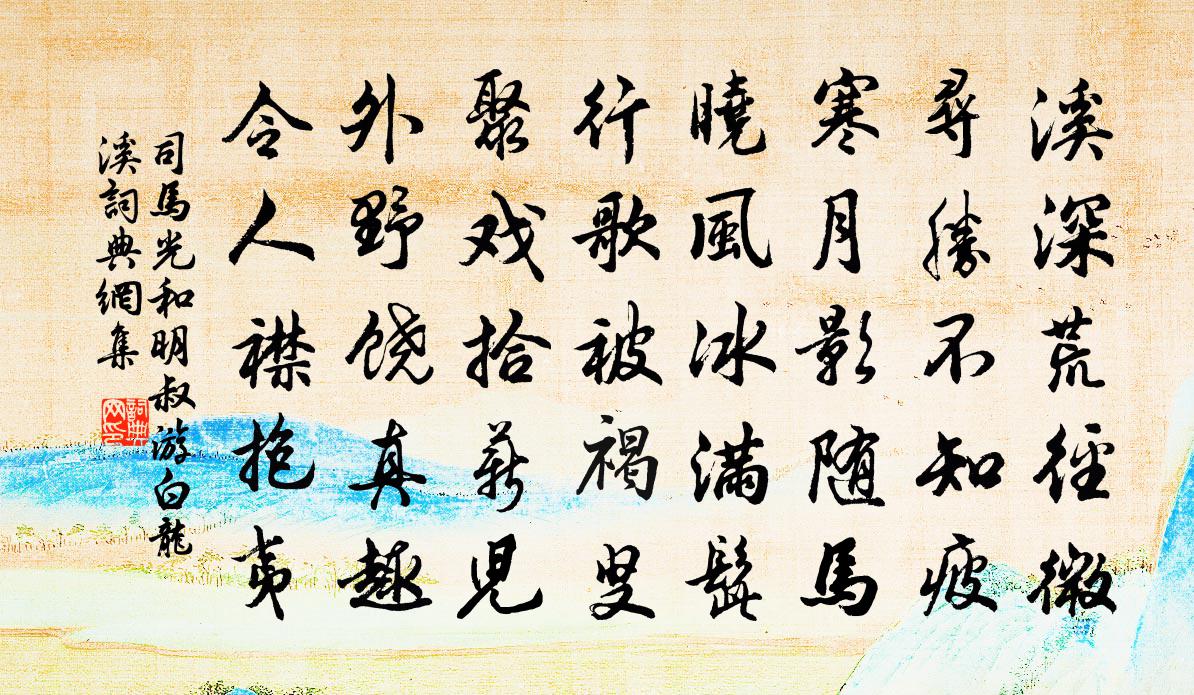 溪深荒徑微
尋勝不知疲
寒月影随馬
曉風冰滿髭
行歌被褐叟
聚戏拾薪兒
外野饶真趣
令人襟抱夷
司馬光和明叔游白龍
溪詞典網集